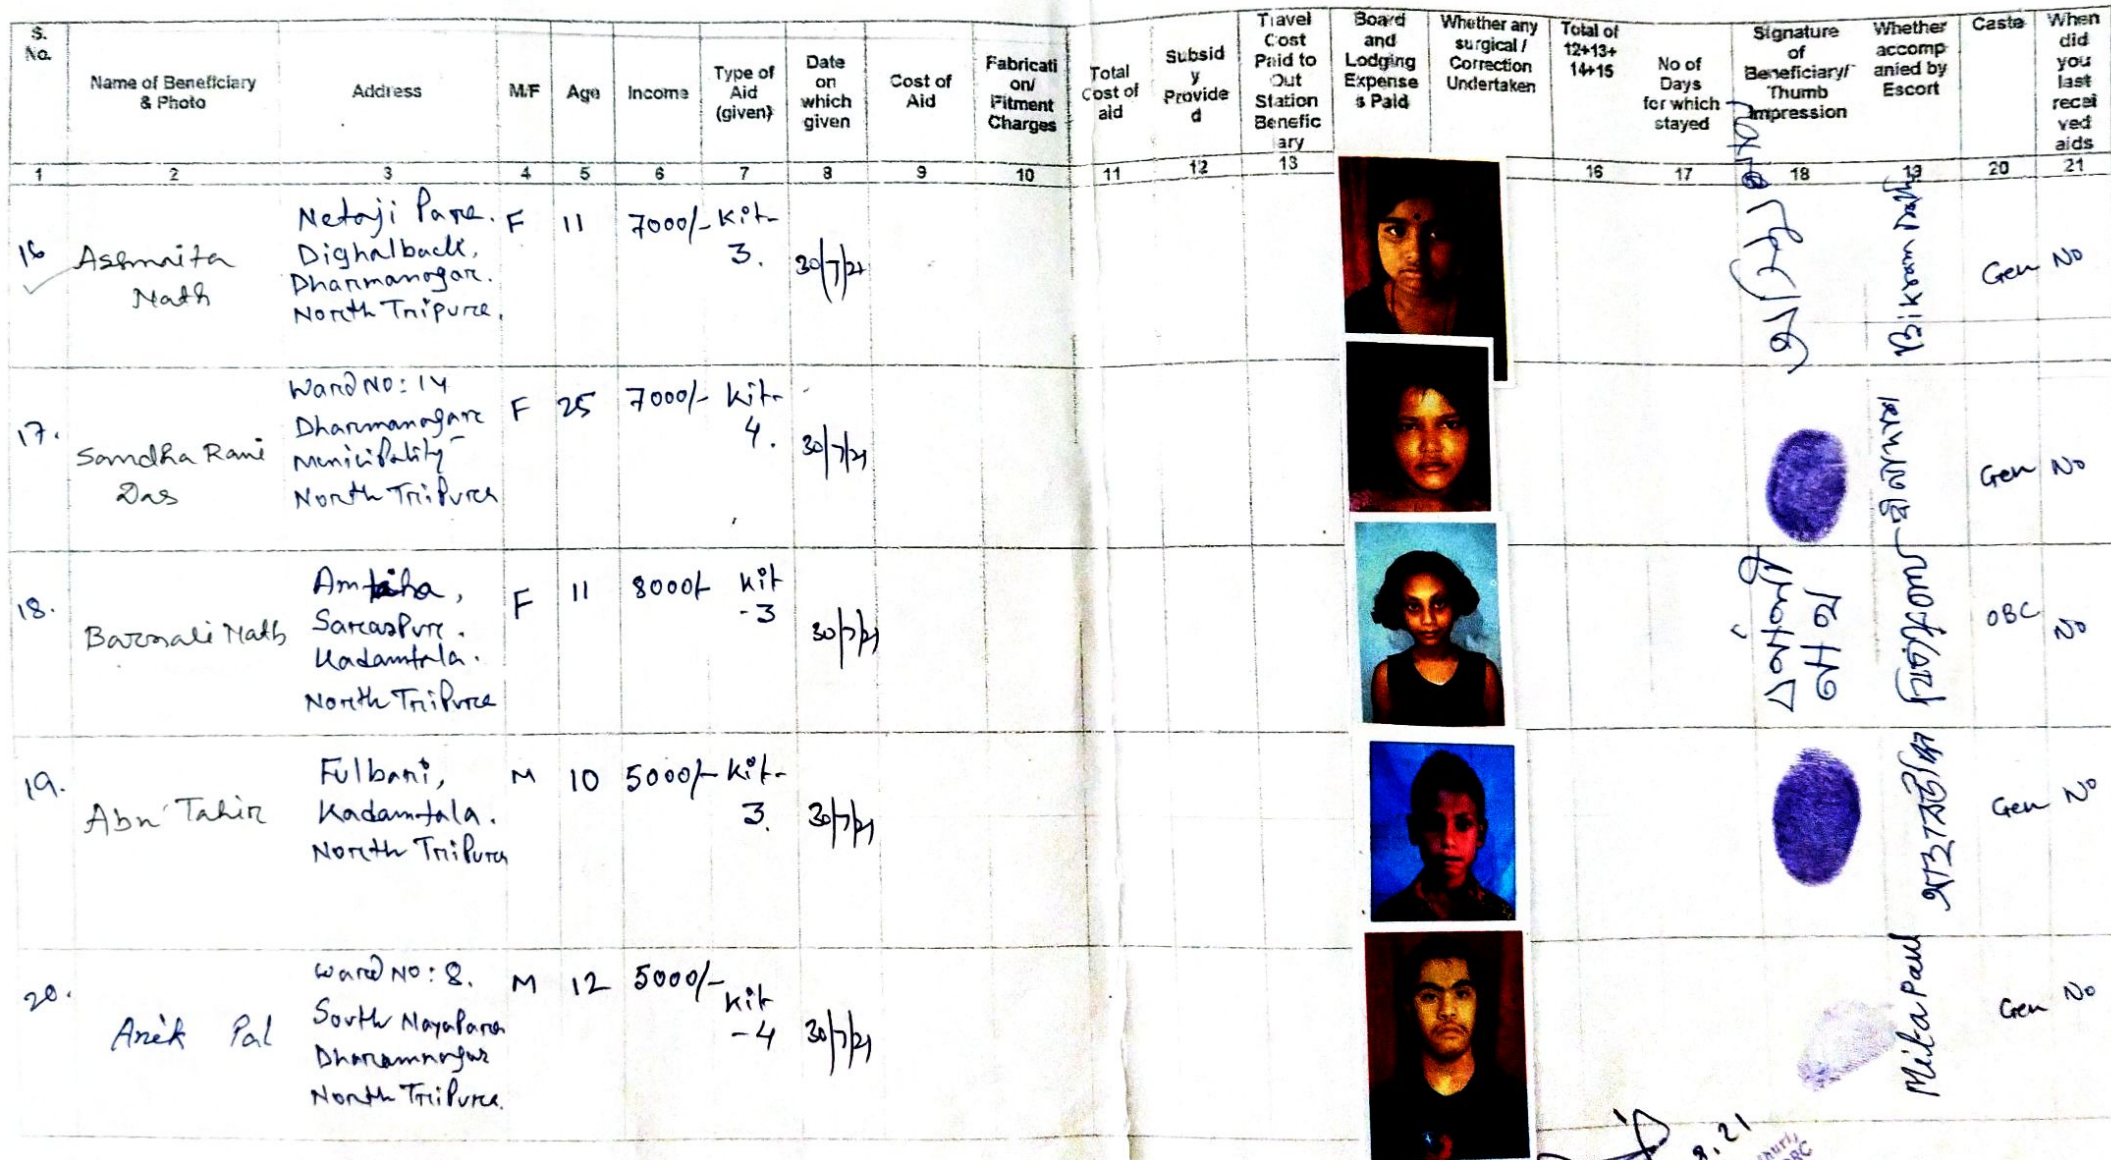 S. No.
Name of Beneficiary & Photo
Address
M/F
Age
Income
Type of Aid (given)
Date on which given
Cost of Aid
Fabricati on/ Fitment Charges
Total Cost of aid
Subsid y Provide d
Travel Cost Paid to Out Station Benefic ary
Board and Lodging Expense s Paid
Whether any surgical / Correction Undertaken
Total of 12+13+ 14+15
No of Days for which stayed
Signature of Beneficiary/ Thumb Impression
Whether accomp anied by Escort
Caste
When did you last recei ved aids
1 2 3 4 5 6 7 8 9 10 11 12 13 16 17 18 19 20 21
16
Assmita Nath
Netaji Para.
Dighalback,
Dharmanagar.
North Tripura.
F 11 7000/- Kit-3. 30/7/21
Bikram
Gen No
17.
Sandha Rani Das
Ward No: 14
Dharmanagar
Municipality
North Tripura
F 25 7000/- Kit-4. 30/7/21
Gen No
18.
Barnali Nath
Saraspur.
Kadamtala.
North Tripura
F 11 8000/- Kit-3 30/7/21
OBC No
19.
Abu Tahir
Fulbari,
Kadamtala.
North Tripura
M 10 5000/- Kit-3. 30/7/21
Gen No
20.
Arik Pal
Ward No: 8.
South Nayapara
Dharamnagar
North Tripura.
M 12 5000/- Kit-4 30/7/21
Mita Paul
Gen No
8.21